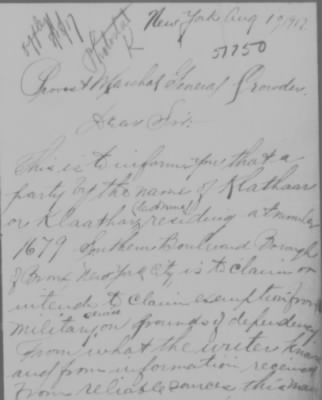 New York Aug 1917
51750
Photostat
Provost Marshal General Crowder.
Dear Sir:
This is to inform you that a
party by the name of Klathaar
or Klaathaar (last name) residing at number
1679 Southern Boulevard Borough
of Bronx New York City, is to claim or
intends to claim exemption from
military service on grounds of dependency
From what the writer knows
and from information received
from reliable sources this man